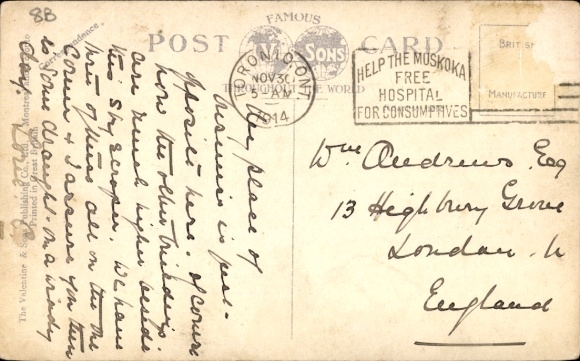 8B
FAMOUS
POST CARD
SONS
THROUGHOUT THE WORLD
TORONTO, ONT.
NOV 30
5 AM
1914
HELP THE MUSKOKA
FREE
HOSPITAL
FOR CONSUMPTIVES
BRITISH
MANUFACTURE
Correspondence.
The Valentine & Sons Publishing Co., Ltd. Montreal
Printed in Great Britain
My place of
business is just
opposite here. Of course
now the other buildings
are much higher beside
this sky scraper. We have
three of these all on the one
corner & I assure you there
is some draught on a windy
day.
Wm Andrews, Esq
13 Highbury Grove
London. N
England